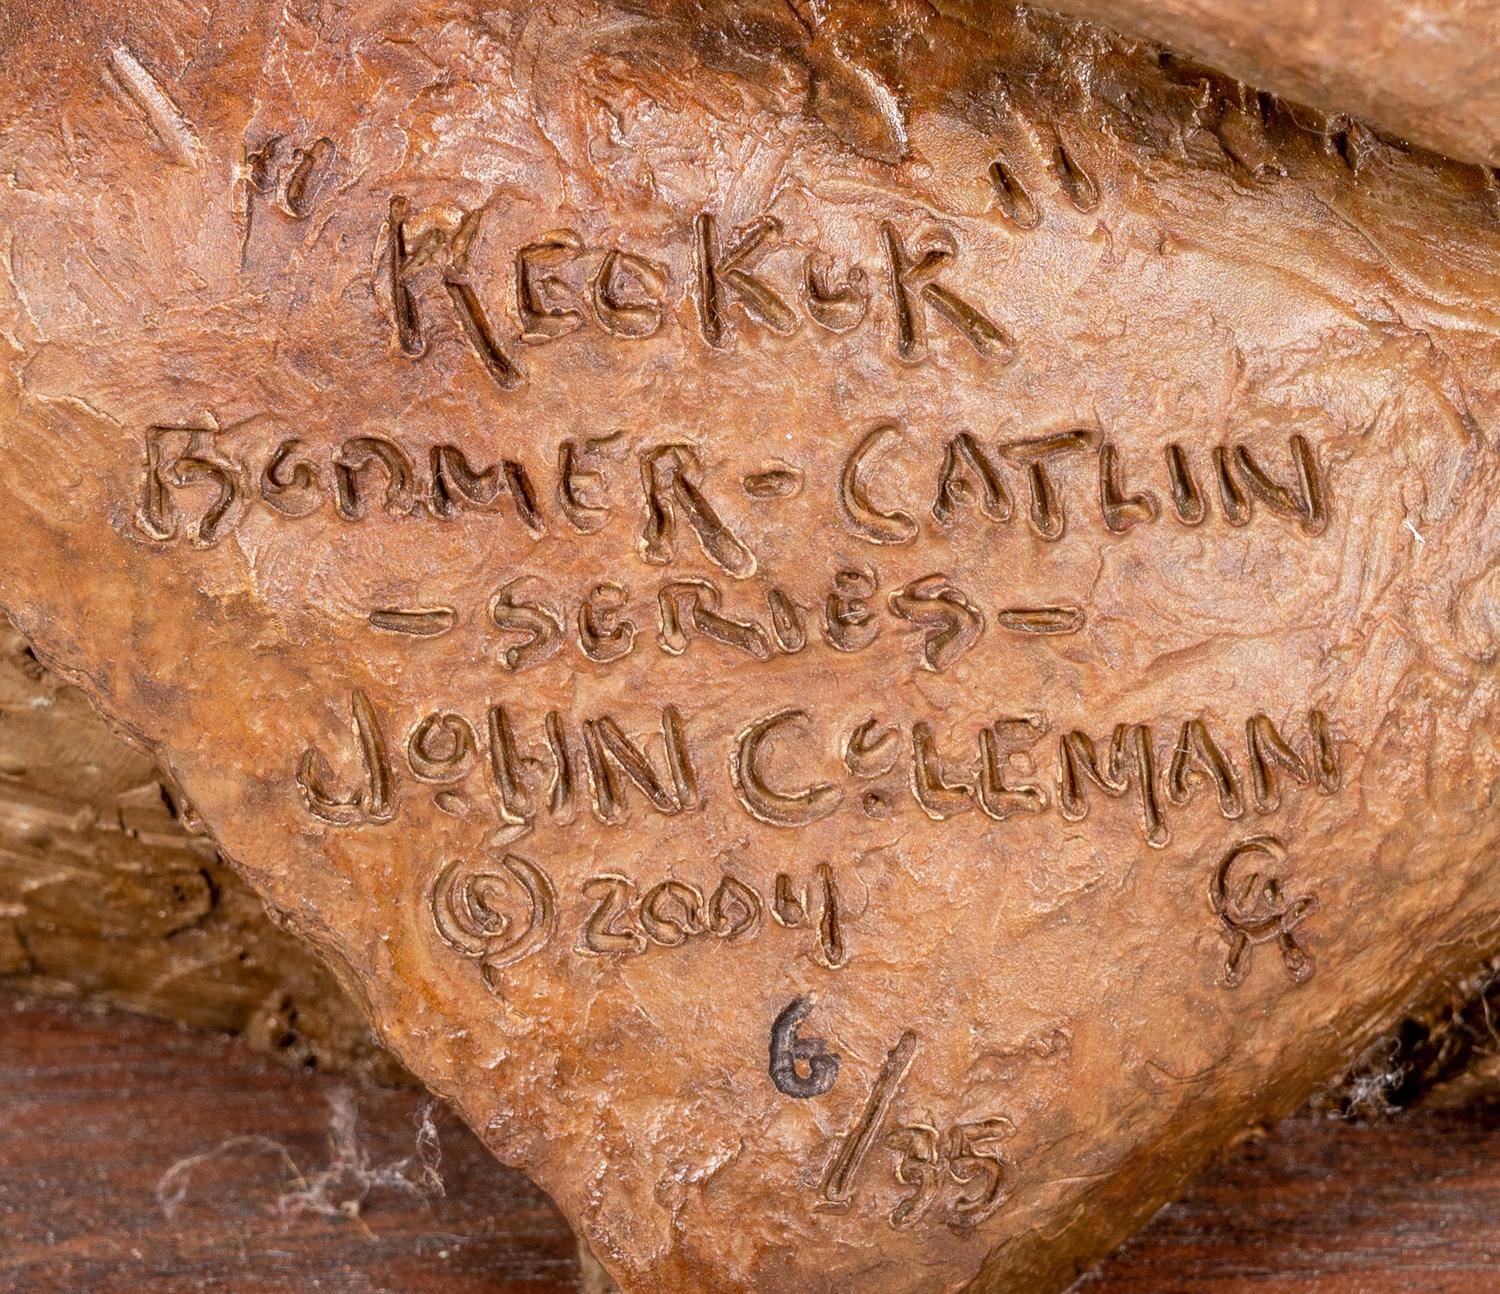 "KEOKUK"
BODMER-CATLIN
-SERIES-
JOHN COLEMAN
©2004 CA
6/35